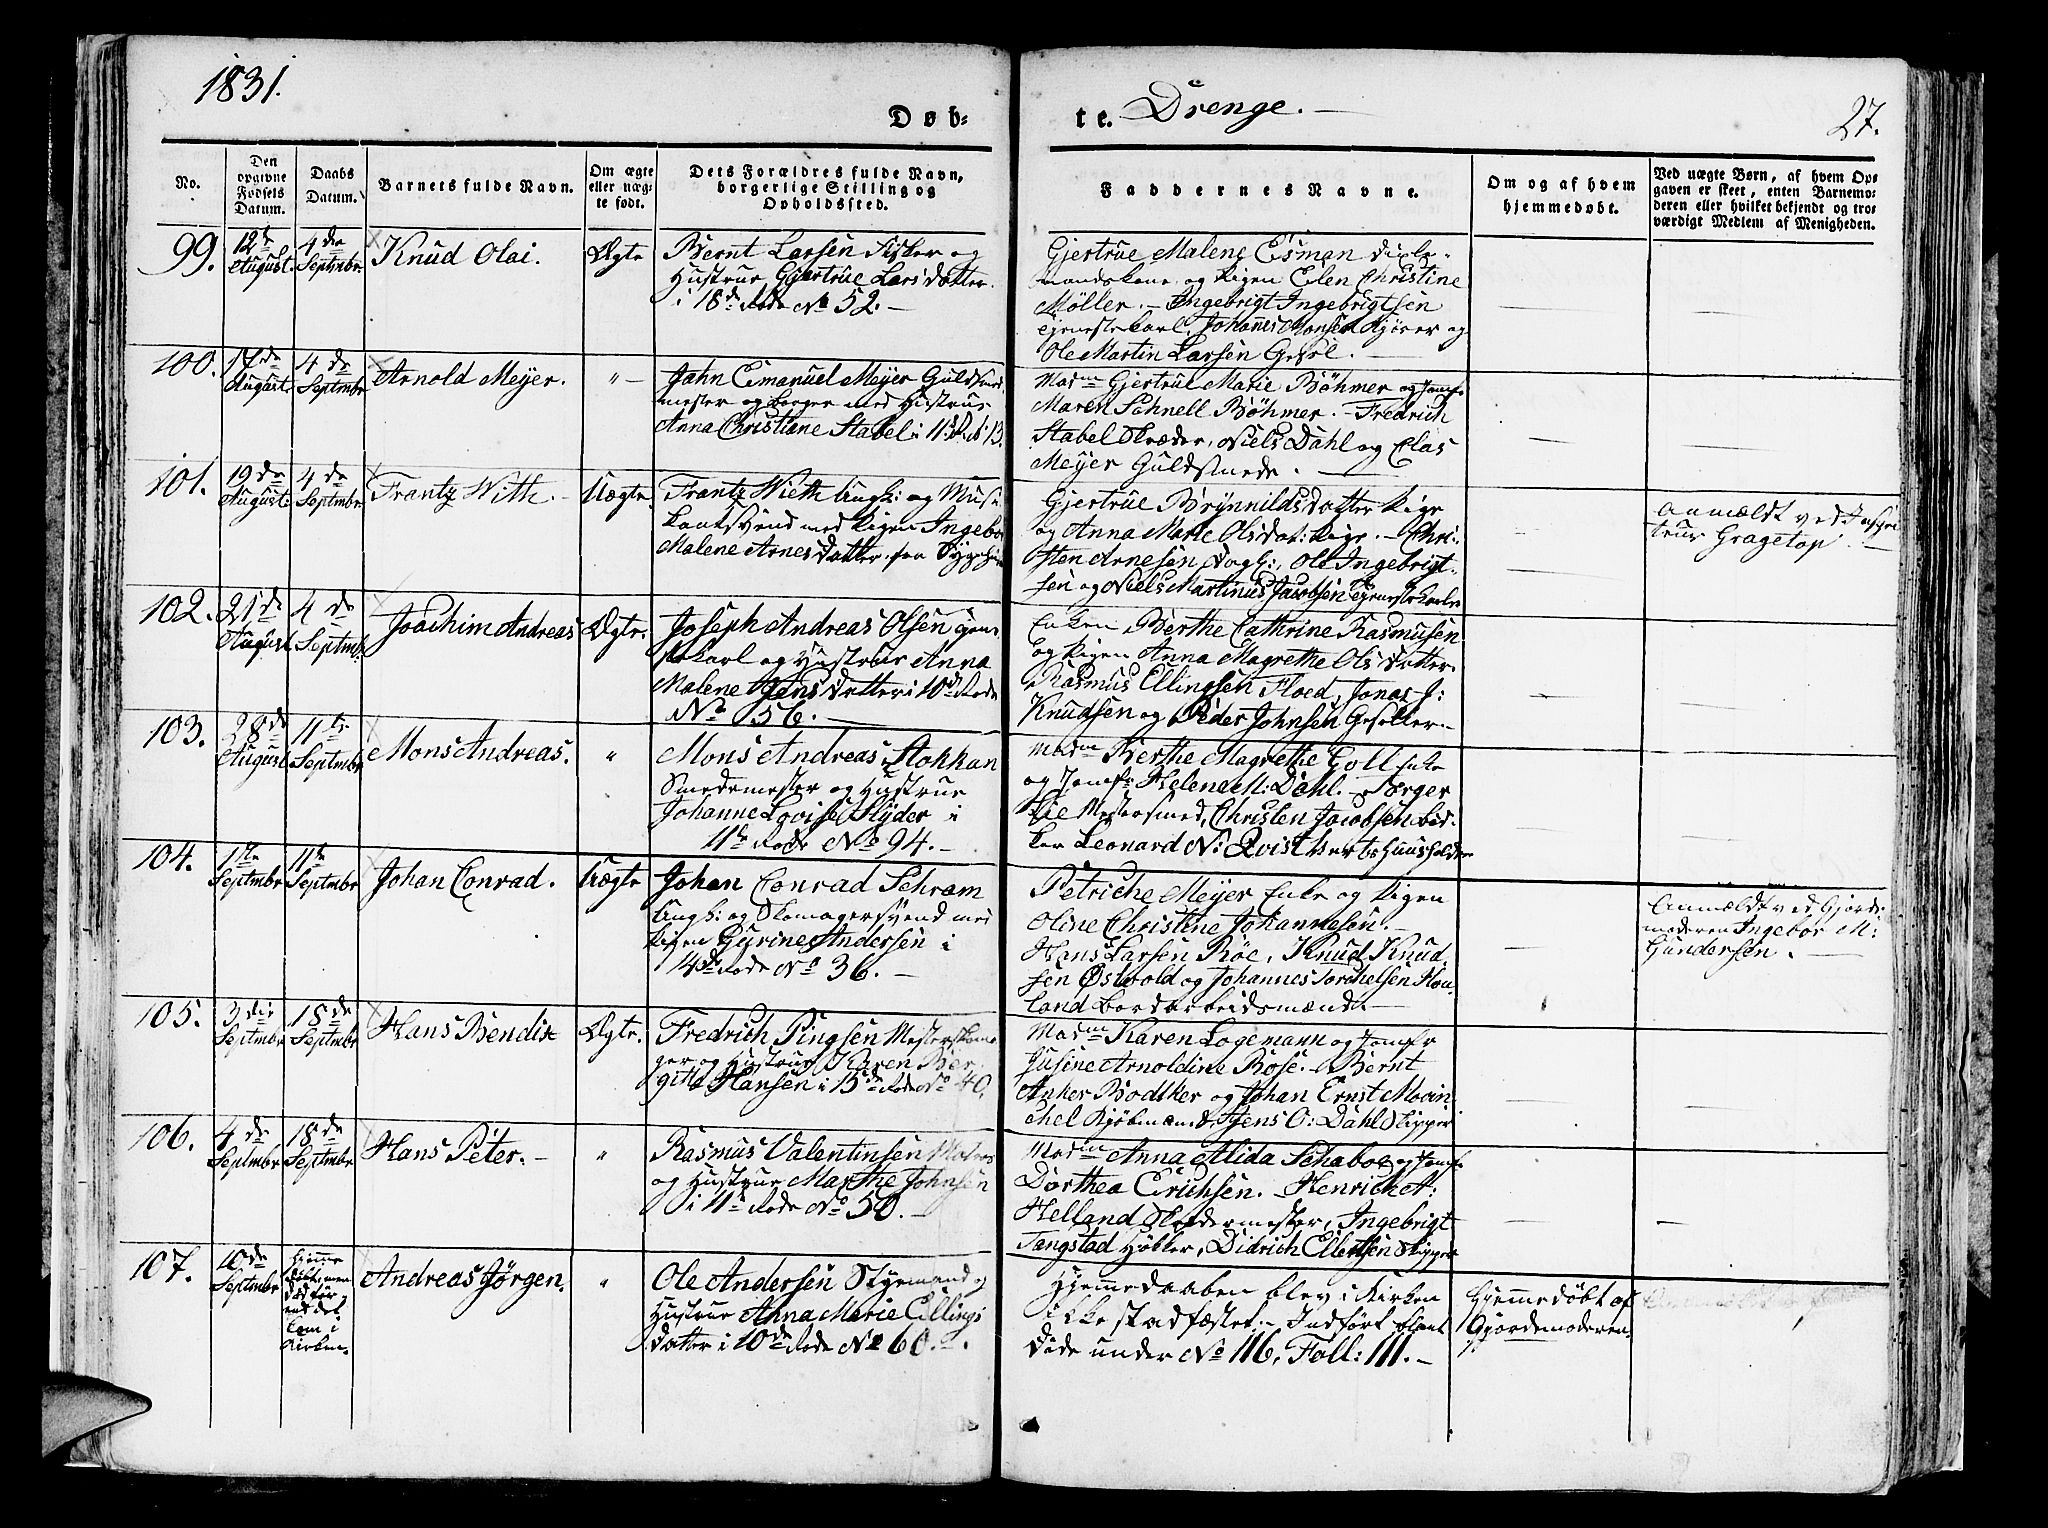 1831.
Døb-
te. Drenge.
27.
No.
Den opgivne Fødsels Datum.
Daabs Datum.
Barnets fulde Navn.
Om ægte eller uægte født.
Dets Forældres fulde Navn, borgerlige Stilling og Opholdssted.
Faddernes Navne.
Om og af hvem hjemmedøbt.
Ved uægte Børn, af hvem Opgaven er skeet, enten Barnemoderen eller hvilket bekjendt og troværdigt Medlem af Menigheden.
99.
12de August.
4de Septmbr
Knud Olai.
Ægte
Bernt Larsen Fisker og
Hustrue Gjertrüe Larsdatter
i 18de Rode No 52.
Gjertrüe Malene Esman
og Pigen Elen Christine
Møller. Ingebrigt Ingebrigtsen
Tjenestekarl, Johanes Monsen Kjører og
Ole Martin Larsen Gesel.
100.
17de August
4de Septmbr
Arnold Meyer.
"
Jahn Emanuel Meyer Guldsmed
mester og Borger med Hustrue
Anna Christiane Stabel i 11te R. No 13.
Madm Gjertrüe Marie Böhmer og Jomfr
Maren Schnell Böhmer. Fredrich
Stabel Skræder, Niels Dahl og Clas
Meyer Guldsmede.
101.
19de August
4de Septmbr
Frantz With.
Uægte
Frantz Wieth Ungk: og Musi
kantsvend med Pigen Ingebor
Malene Arnesdatter
Gjertrüe Brynnildsdatter Pige
og Anna Marie Olsdat: Pige. Chri-
sten Arnesen Dagk:, Ole Ingebrigt-
sen og Niels Martinus Jacobsen Tjenestekarle
Anmældt ved
Gragetop.
102.
21de August
4de Septmb.
Joachim Andreas
Ægte.
Joseph Andreas Olsen Tjene-
stekarl og Hustrue Anna
Malene Jensdatter i 10de Rode
No 56.
Enken Berthe Cathrine Rasmusen
og Pigen Anna Magrethe Olsdatter.
Rasmus Ellingsen Floed, Jonas J:
Knudsen og Peder Johnsen Geseller.
103.
28de August
11te Septmbr
Mons Andreas.
"
Mons Andreas Stokkan
Smedemester og Hustrue
Johanne Lovise Slyder i
11te Rode No 94.
Madm Berthe Magrethe Goll Enke
og Jomfr Helene M: Dahl. Torger
Lie Mestersmed, Christen Jacobsen Bød-
ker Leonard N: Qvist
104.
1ste Septmbr
11te Septmbr
Johan Conrad.
Uægte
Johan Conrad Schram
Ungk: og Skomagersvend med
Pigen Gurine Andersen i
14de Rode No 36.
Petriche Meyer Enke og Pigen
Oline Christine Johannesen.
Hans Larsen Røe, Knud Knud-
sen Østvold og Johannes Torchelsen Hou-
land Bordarbeidsmænd.
Anmældt ved Gjorde
moderen Ingebor M:
Gundersen.
105.
3die Septmbr
18de Septmbr
Hans Bendix
Ægte.
Fredrich Pingsen
og Hustrue Karen Ber
githa Hansen i 15de Rode No 40.
Madm Karen Logemann og Jomfr
Jusine Arnoldine Bose. Bernt
Anker Bødtker og Johan Ernst Mowin
chel Kjøbmæn. & Jens O: Dahl Skipper
106.
4de Septmbr
18de Septmbr
Hans Peter.
"
Rasmus Valentinsen Matros
og Hustrue Marthe Johnsen
i 11te Rode No 50.
Madm Anna Alida Schaboe og Jomfr
Dorthea Erichsen. Henrich A:
Helland Skrædermester, Ingebrigt
Tangstad Høkker, Didrich Ellertsen Skipper
107.
10de Septmbr
hjemme
døbt, men
død før-
end det
kom i
Kirken.
Andreas Jørgen.
"
Ole Andersen Styrmand og
Hustrue Anna Marie Ellings
datter i 10de Rode No 60.
Hjemmedaaben blev i Kirken
ikke stadfæstet. Indført blant
døde under No 116, Foll: 111.
Hjemmedøbt af
Gjordemoderen.